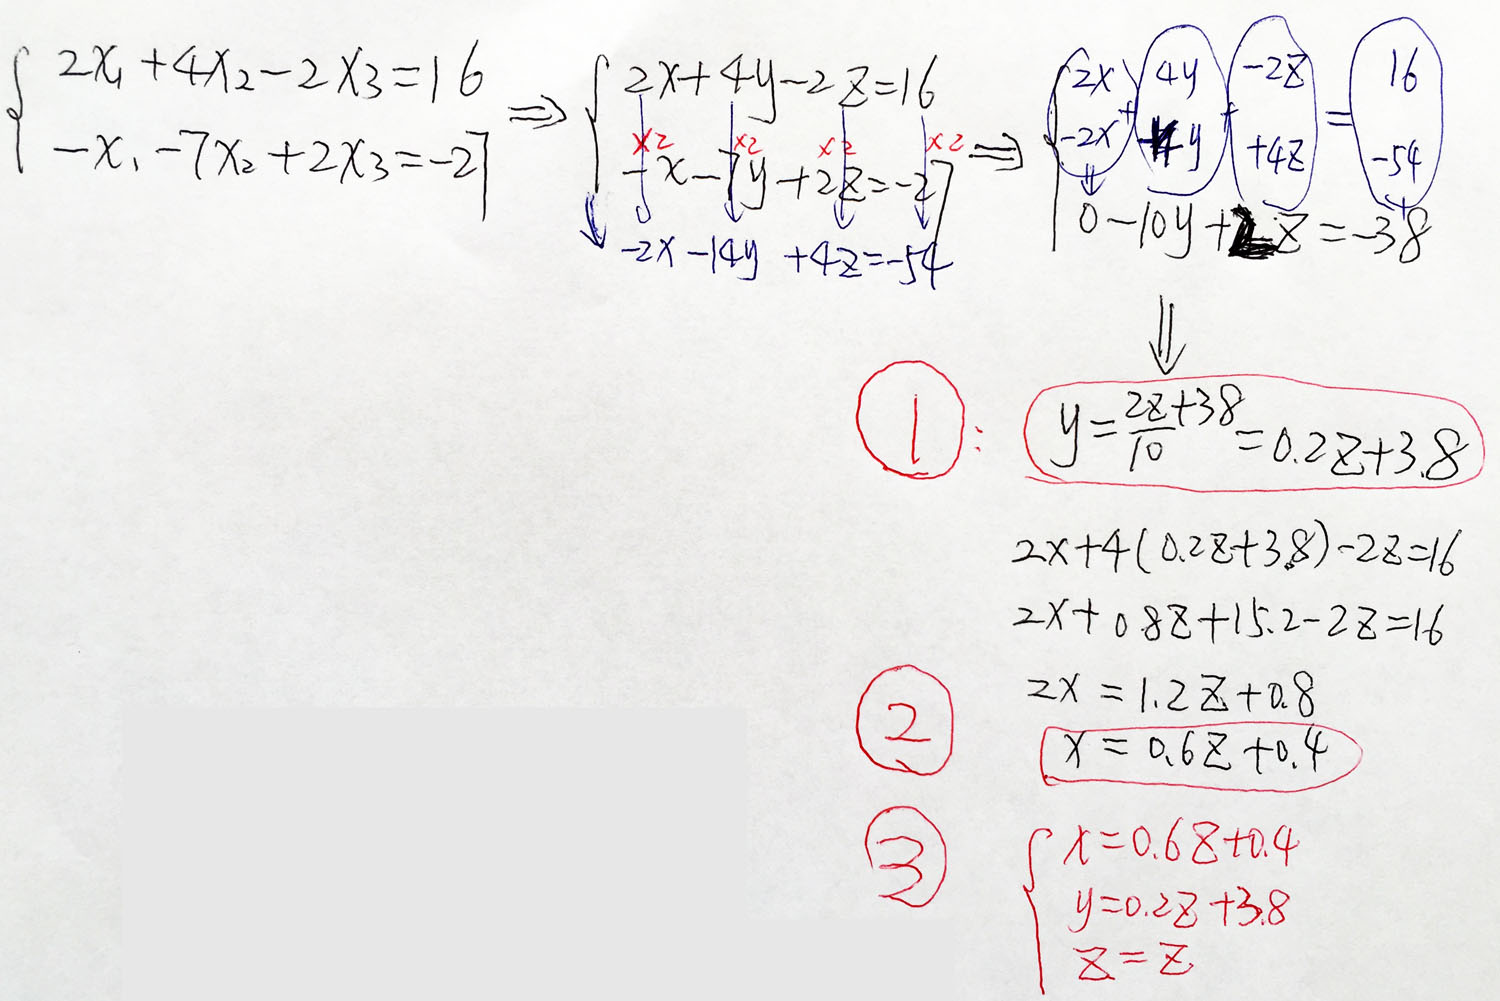 2x₁+4x₂-2x₃=16
-x₁-7x₂+2x₃=-27
⇒
2x+4y-2z=16
x2 x2 x2 x2
-x-7y+2z=-27
-2x-14y+4z=-54
⇒
2x + 4y + -2z = 16
-2x -14y +4z -54
0-10y+2z=-38
1: y=2z+38/10=0.2z+3.8
2x+4(0.2z+3.8)-2z=16
2x+0.8z+15.2-2z=16
2x=1.2z+0.8
2 x=0.6z+0.4
3 x=0.6z+0.4
y=0.2z+3.8
z=z